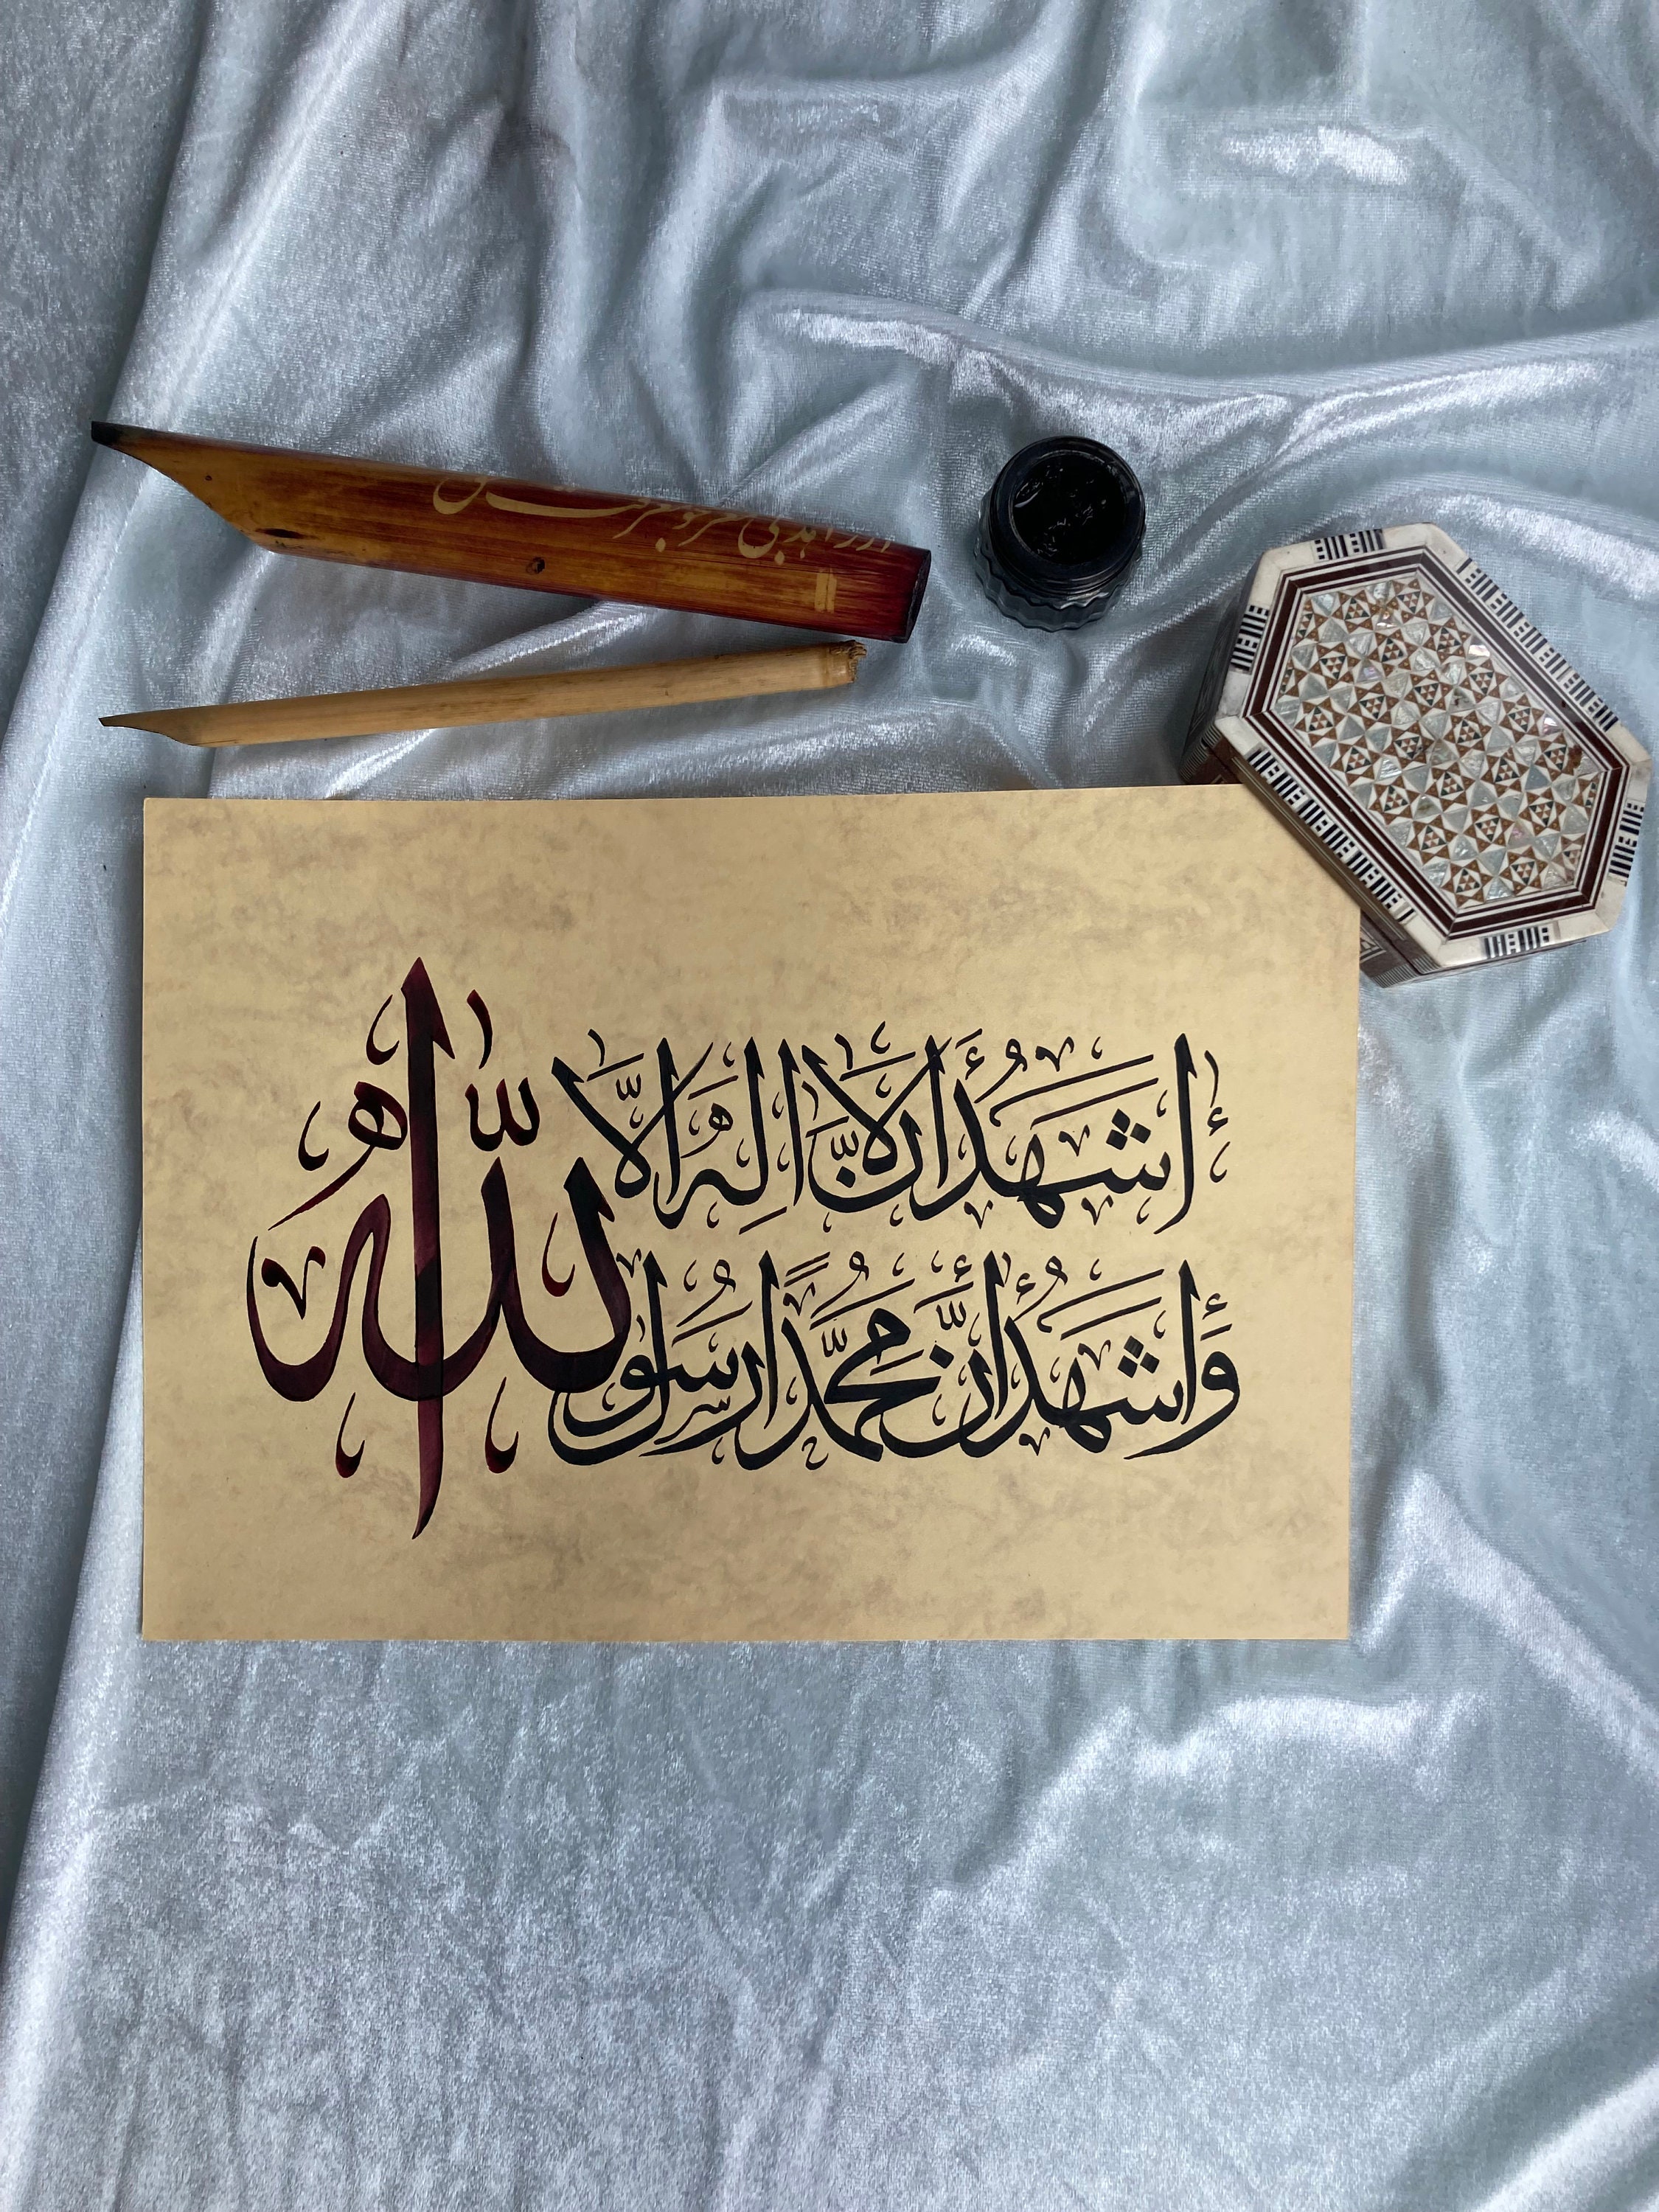 أَشْهَدُ أَنْ لَا إِلٰهَ إِلَّا
وَأَشْهَدُ أَنَّ مُحَمَّدًا رَسُولُ
اللّٰهِ